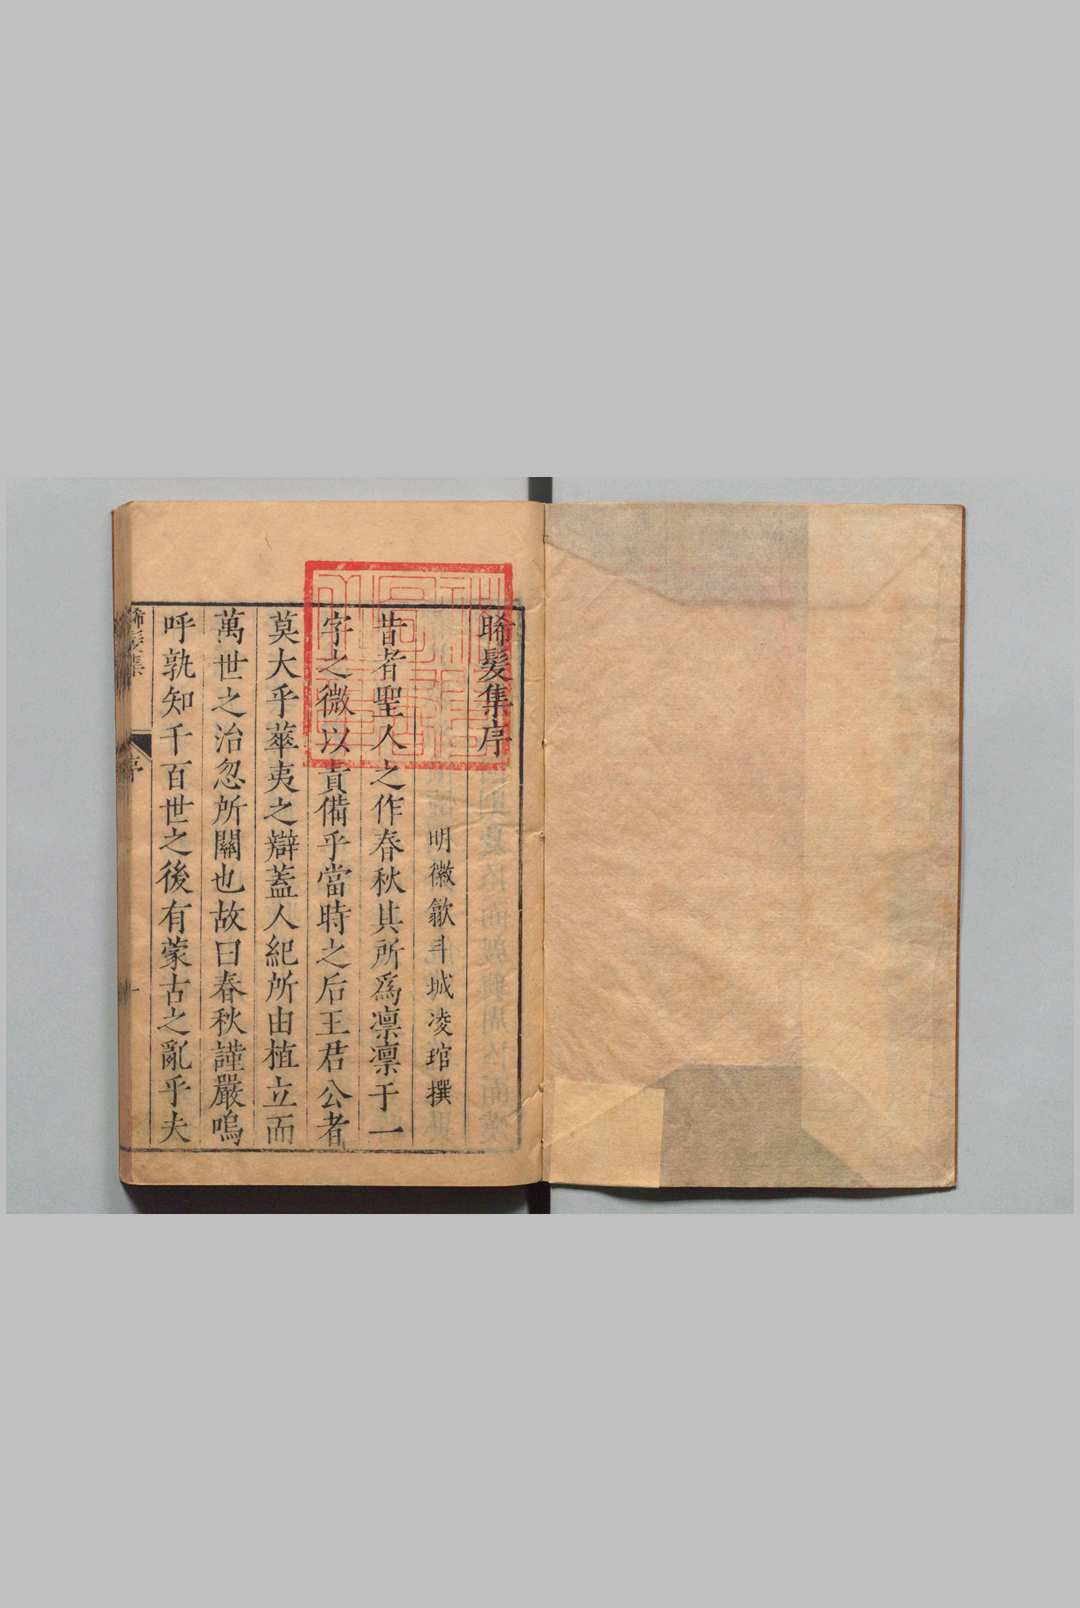 晞髮集序
明徽歙丰城凌琯撰
昔者聖人之作春秋其所爲凛凛于一
字之微以責備乎當時之后王君公者
莫大乎華夷之辯蓋人紀所由植立而
萬世之治忽所關也故曰春秋謹嚴嗚
呼孰知千百世之後有蒙古之亂乎夫
晞髮集
序
一